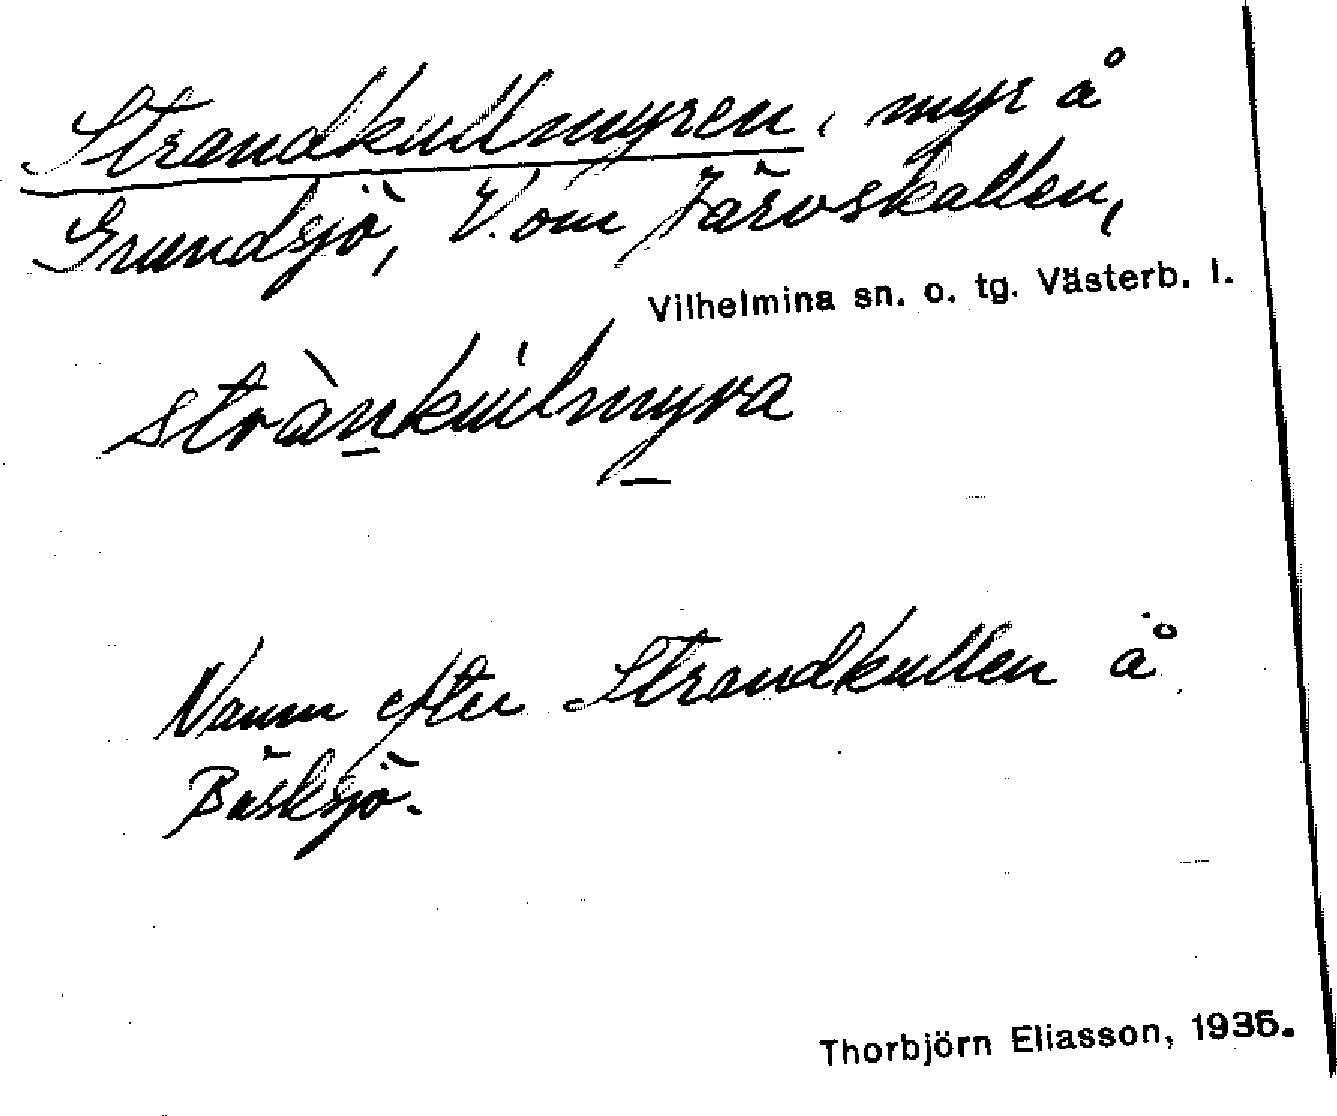 Strandkullmyren, myr å
Grundsjö, V. om Järvskallen,
Vilhelmina sn. o. tg. Västerb. l.
strànkúlmyra
Namn efter Strandkullen å
Bäsksjö.
Thorbjörn Eliasson, 1935.